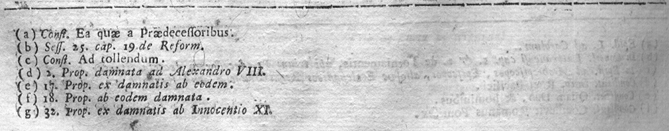 (a) Const. Ea quæ a Prædecessoribus.
(b) Sess. 25. cap. 19. de Reform.
(c) Const. Ad tollendum.
(d) 2. Prop. damnata ad Alexandro VIII.
(e) 17. Prop. ex damnatis ab eodem.
(f) 18. Prop. ab eodem damnata.
(g) 32. Prop. ex damnatis ab Innocentio XI.